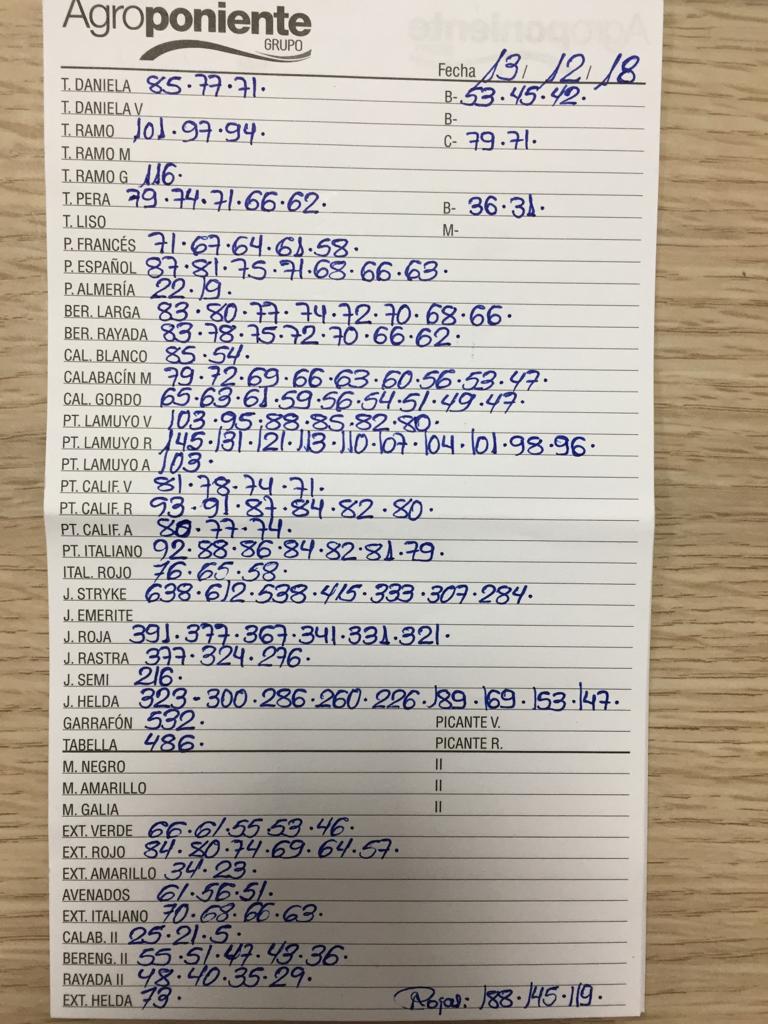 Agroponiente
GRUPO
Fecha 13/ 12/ 18
T. DANIELA 85.77.71. B- 53.45.42.
T. DANIELA V B-
T. RAMO 101.97.94. C- 79.71.
T. RAMO M
T. RAMO G 116.
T. PERA 79.74.71.66.62. B- 36.31.
T. LISO M-
P. FRANCÉS 71.67.64.61.58.
P. ESPAÑOL 87.81.75.71.68.66.63.
P. ALMERÍA 22.19.
BER. LARGA 83.80.77.74.72.70.68.66.
BER. RAYADA 83.78.75.72.70.66.62.
CAL. BLANCO 85.54.
CALABACÍN M 79.72.69.66.63.60.56.53.47.
CAL. GORDO 65.63.61.59.56.54.51.49.47.
PT. LAMUYO V 103.95.88.85.82.80.
PT. LAMUYO R 145.131.121.113.110.107.104.101.98.96.
PT. LAMUYO A 103.
PT. CALIF. V 81.78.74.71.
PT. CALIF. R 93.91.87.84.82.80.
PT. CALIF. A 80.77.74.
PT. ITALIANO 92.88.86.84.82.81.79.
ITAL. ROJO 76.65.58.
J. STRYKE 638.612.538.415.333.307.284.
J. EMERITE
J. ROJA 391.377.367.341.331.321.
J. RASTRA 377.324.276.
J. SEMI 216.
J. HELDA 323-300.286.260.226.189.169.153.147.
GARRAFÓN 532. PICANTE V.
TABELLA 486. PICANTE R.
M. NEGRO II
M. AMARILLO II
M. GALIA II
EXT. VERDE 66.61.55 53.46.
EXT. ROJO 84.80.74.69.64.57.
EXT. AMARILLO 34.23.
AVENADOS 61.56.51.
EXT. ITALIANO 70.68.66.63.
CALAB. II 25.21.5.
BERENG. II 55.51.47.43.36.
RAYADA II 48.40.35.29.
EXT. HELDA 73. Rojas: 188.145.119.